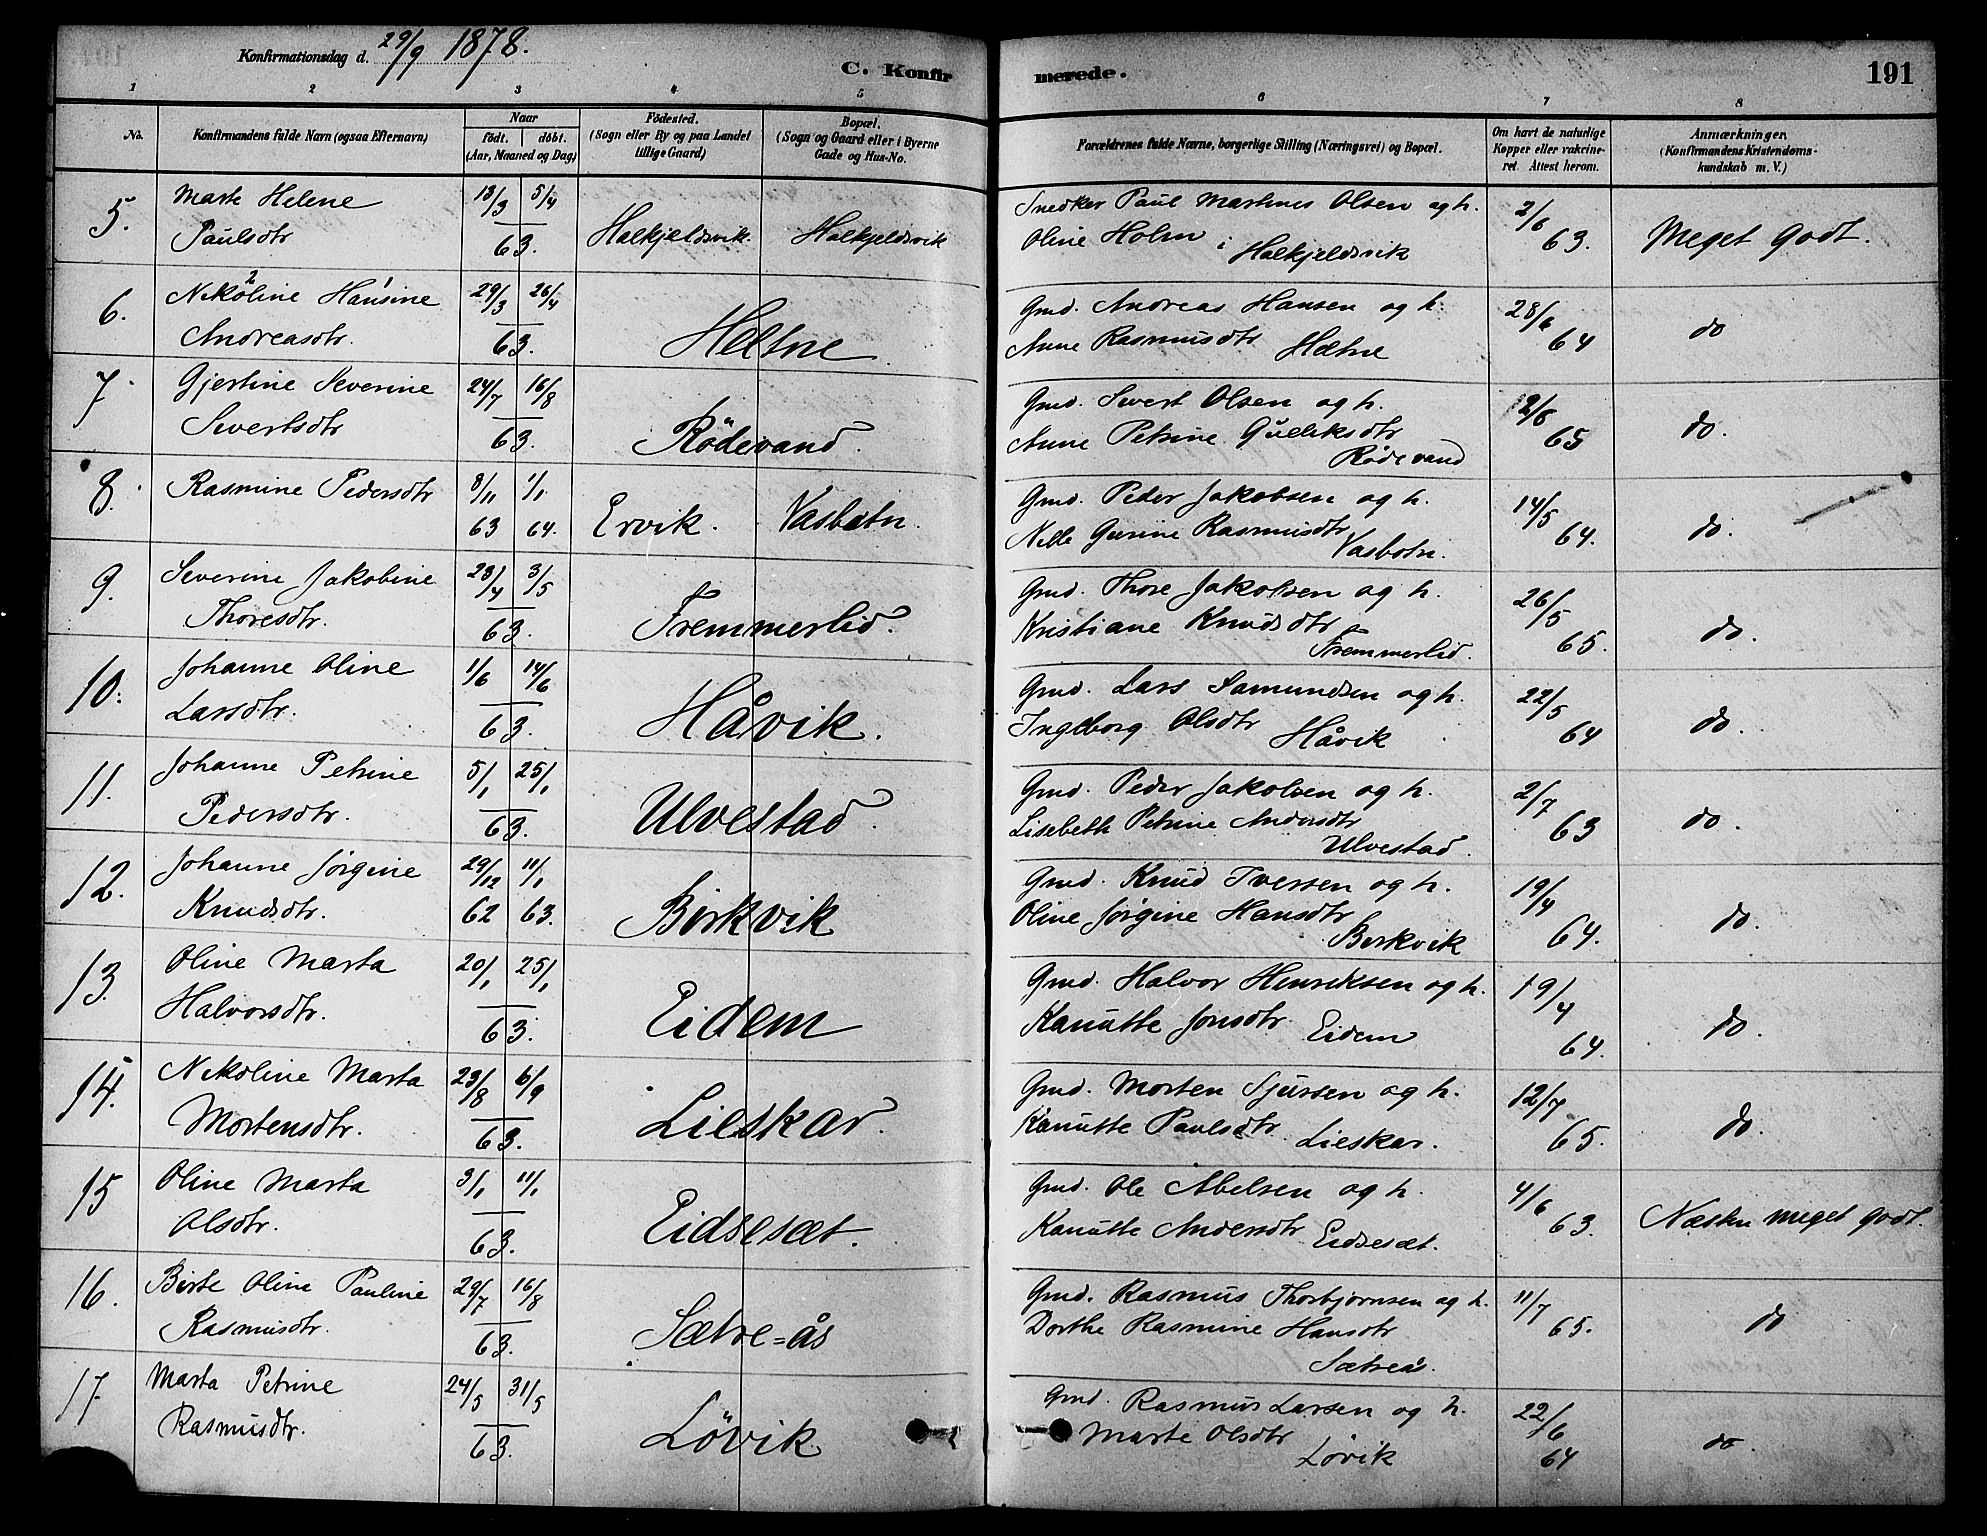 Konfirmationsdag d. 29/9 1878.
C. Konfirmerede.
191
1 2 3 4 5 6 7 8
No.
Konfirmandens fulde Navn (ogsaa Efternavn)
Naar
födt. döbt.
(Aar, Maaned og Dag)
Födested.
(Sogn eller By og paa Landet
tillige Gaard)
Bopæl.
(Sogn og Gaard eller i Byerne
Gade og Hus-No.
Forældrenes fulde Navne, borgerlige Stilling (Næringsvei) og Bopæl.
Om havt de naturlige
Kopper eller vakcine-
ret. Attest herom.
Anmærkninger.
(Konfirmandens Kristendoms-
kundskab m. V.)
5. Marte Helene 13/3 5/4 Snedker Paul Martines Olsen og h. 2/6
Paulsdtr 63. Halkjeldsvik. Halkjeldsvik Oline Holm i Halkjeldsvik 63. Meget Godt.
6. Nikoline 2 Hansine 1 29/3 26/4 Gmd. Andreas Hansen og h. 28/6
Andreasdtr. 63. Heltne Anne Rasmusdtr Hæltne 64 do
7. Gjertine Severine 24/7 16/8 Gmd. Sivert Olsen og h. 2/6
Sivertsdtr 63. Rödevand. Anne Petrine Gulliksdtr 65 do.
Rödevand
8. Rasmine Pedersdtr 8/11 1/1 Gmd. Peder Jakobsen og h. 14/5
63 64. Ervik. Vasbotn. Nille Gurine Rasmusdtr 64. do.
Vasbotn.
9. Severine Jakobine 23/4 3/5 Gmd. Thore Jakobsen og h. 26/5
Thoresdtr. 63. Fremmerlid. Kristiane Knudsdtr 65. do.
Fremmerlid.
10. Johanne Oline 1/6 14/6 Gmd. Lars Samundsen og h. 22/5
Larsdtr. 63. Håvik. Ingeborg Olsdtr Håvik 64 do.
11. Johanne Petrine 5/1 25/1 Gmd. Peder Jakobsen og h. 2/7
Pedersdtr. 63. Ulvestad. Lisebeth Petrine Andersdtr 63 do.
Ulvestad.
12. Johanne Jørgine 29/12 11/1 Gmd. Knud Iversen og h. 19/4
Knudsdtr. 62 63. Birkvik Oline Jørgine Hansdtr 64. do.
Birkvik
13. Oline Marta 20/1 25/1 Gmd. Halvor Henriksen og h. 19/4
Halvorsdtr. 63. Eidem Kanutte Jonsdtr. Eidem 64. do.
14. Nikoline Marta 23/8 6/9 Gmd. Morten Sjursen og h. 12/7
Mortensdtr. 63. Lieskar. Kanutte Paulsdtr Lieskar. 65. do.
15 Oline Marta 3/1 11/1 Gmd. Ole Abelsen og h. 4/6
Olsdtr. 63. Eidsesæt. Kanutte Andersdtr Eidsesæt. 63. Næsten meget godt.
16. Birte Oline Pauline 29/7 16/8 Gmd. Rasmus Thorbjørnsen og h. 11/7
Rasmusdtr. 63. Sætre=ås Dorthe Rasmine Hansdtr 65. do
Sætreås.
17. Marta Petrine 24/5 31/5 Gmd. Rasmus Larsen og h. 22/6
Rasmusdtr. 63. Lövik Marte Olsdtr Lövik 64 do.